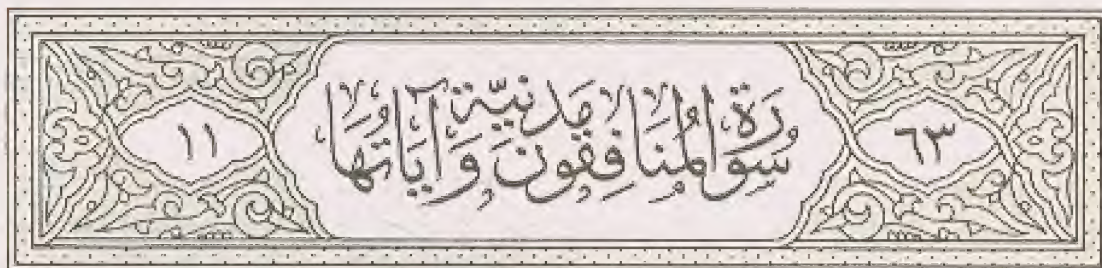 ٦٣
سُورَةُ الْمُنَافِقُونَ مَدَنِيَّة وَآيَاتُهَا
١١